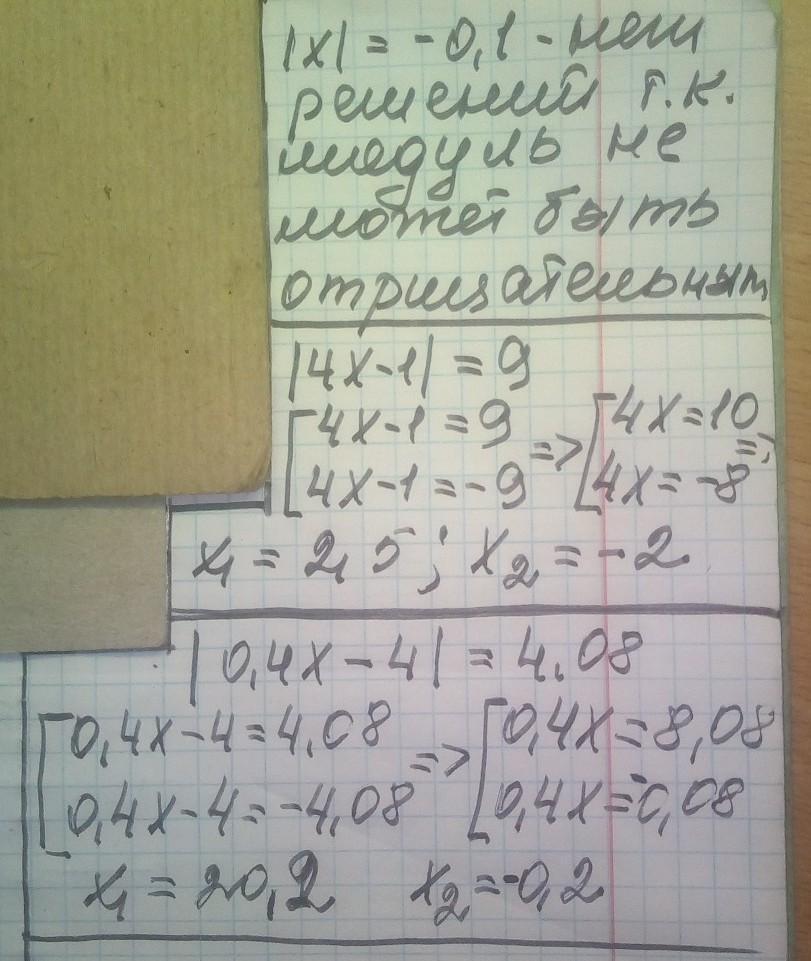 |x| = -0,1 - нет
решений т.к.
модуль не
может быть
отрицательным
|4x-1| = 9
[4x-1 = 9 => [4x=10 =>
[4x-1 = -9 [4x= -8
x₁ = 2,5; x₂ = -2
|0,4x-4| = 4.08
[0,4x-4=4,08 => [0,4x=8,08
[0,4x-4= -4,08 [0,4x=-0,08
x₁ = 20,2 x₂=-0,2